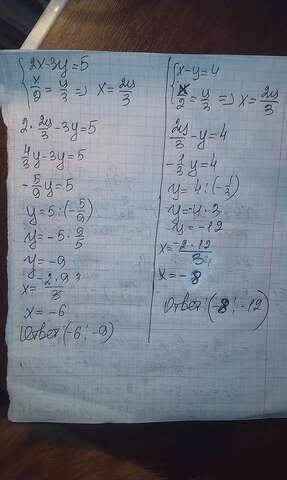 2x-3y=5
x/2 = y/3 => x = 2y/3
2·2y/3-3y=5
4/3y-3y=5
-5/9y=5
y=5:(-5/9)
y=-5·9/5
y=-9
x=-2·9/3
x=-6
Ответ:(-6;-9)
x-y=4
x/2 = y/3 => x = 2y/3
2y/3-y=4
-1/3y=4
y=4:(-1/3)
y=-4·3
y=-12
x=-2·12/3
x=-8
Ответ:(-8;-12)